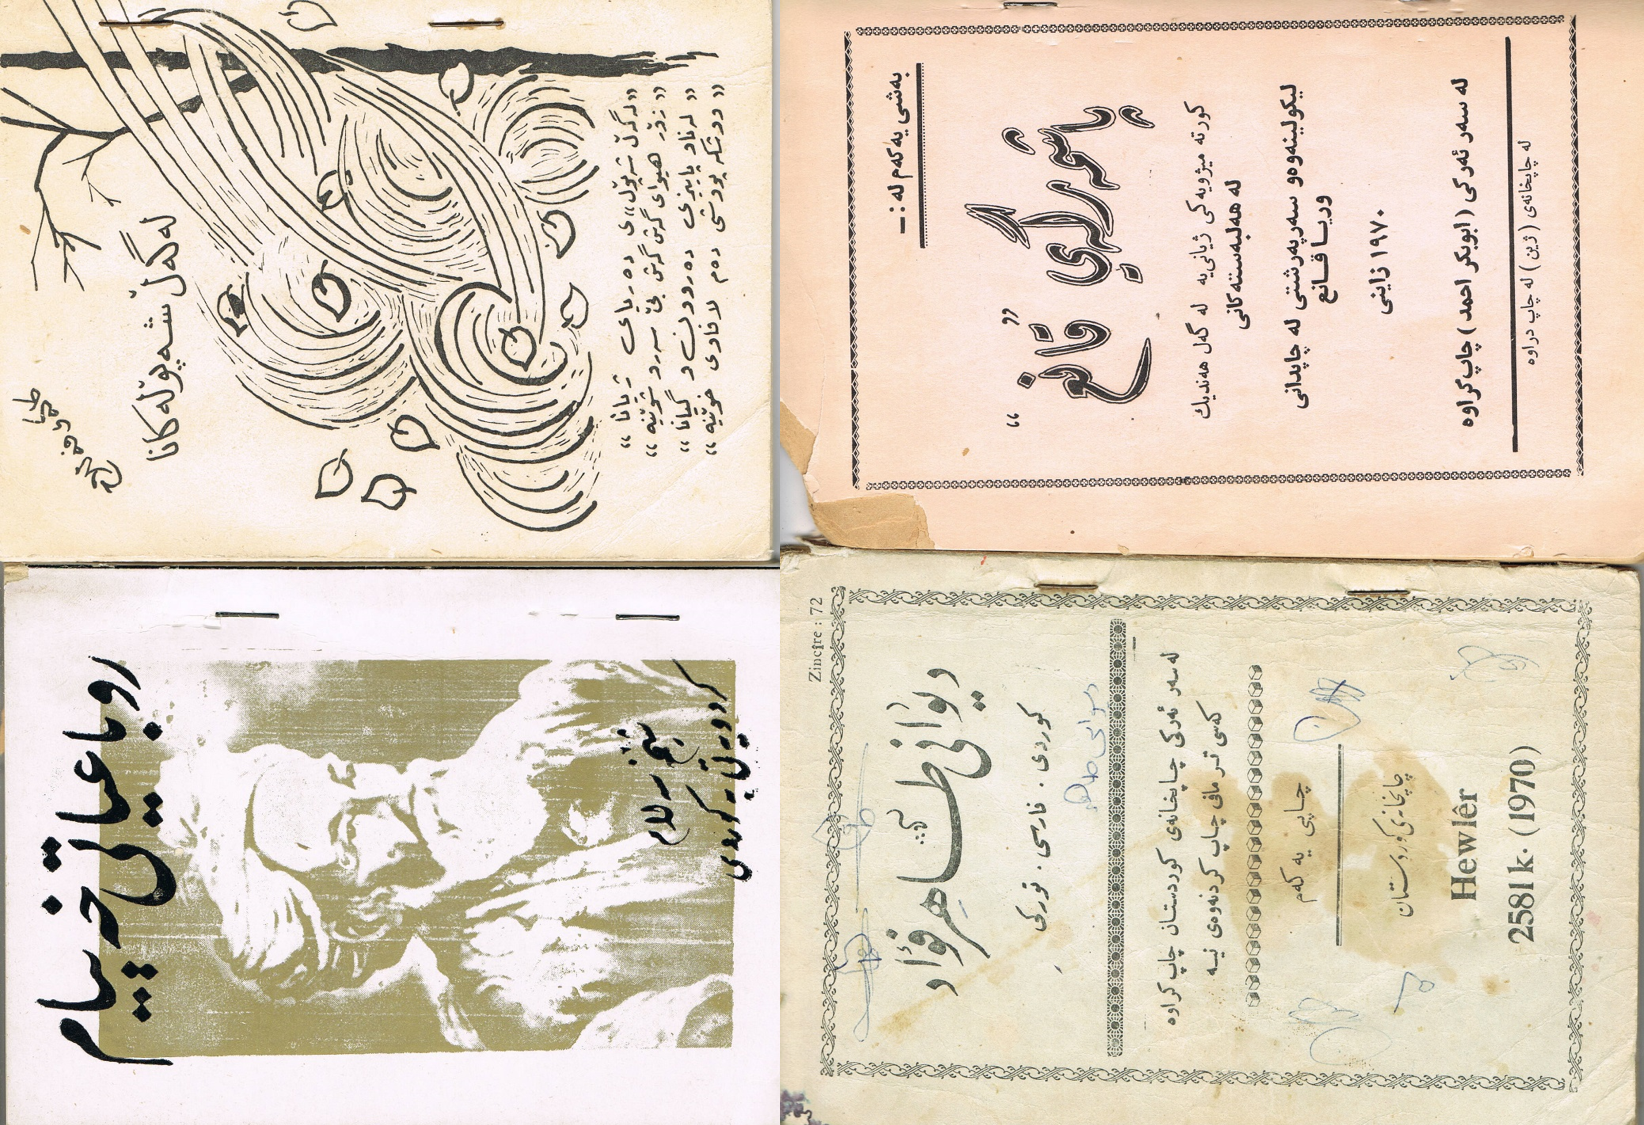 لەگەڵ شەپۆلەکانا
”لەگەڵ شەپۆل“ی دەریای ژیانا“
”زۆر هیوای گرش گرش بێ سەرد شوێنە“
”لەناو پاییزی دەروون و گیانا“
”وەشکە پووشی دەم لافاوی خوێنە“
بەشی یەکەم لە :ـ
پاشەرۆکی
” قانع “
کورتە میژویەکی ژیانی یە لە گەل هەندیك
لە هەلبەستەکانی
لیکولینەوەو سەرپەرشتی لە چاپدانی
وریا قانع
١٩٧٠ زاینی
لە سەر ئەرکی ( ابوبکر احمد ) چاپ کراوە
لە چاپخانەی ( ژین ) لە چاپ دراوە
روباعیاتی خەییام
شیخ سەلام
کردویەتی بە کوردی
Zincîre : 72
دیوانی طاهر فؤاد
کوردی . فارسی . تورکی
لەسەر ئەرکی چاپخانەی کوردستان چاپ کراوە
کەسی تر مافی چاپ کردنەوەی نییە
چاپی یەکەم
چاپخانەی کوردستان
Hewlêr
2581 k. (1970)